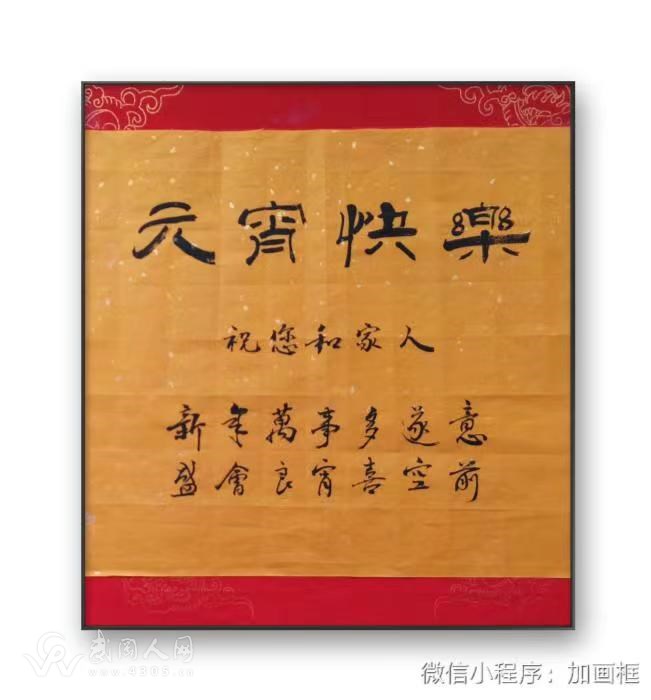 元宵快樂
祝您和家人
新年萬事多遂意
盛會良宵喜空前
武冈人网
www.4305.cn
微信小程序：加画框